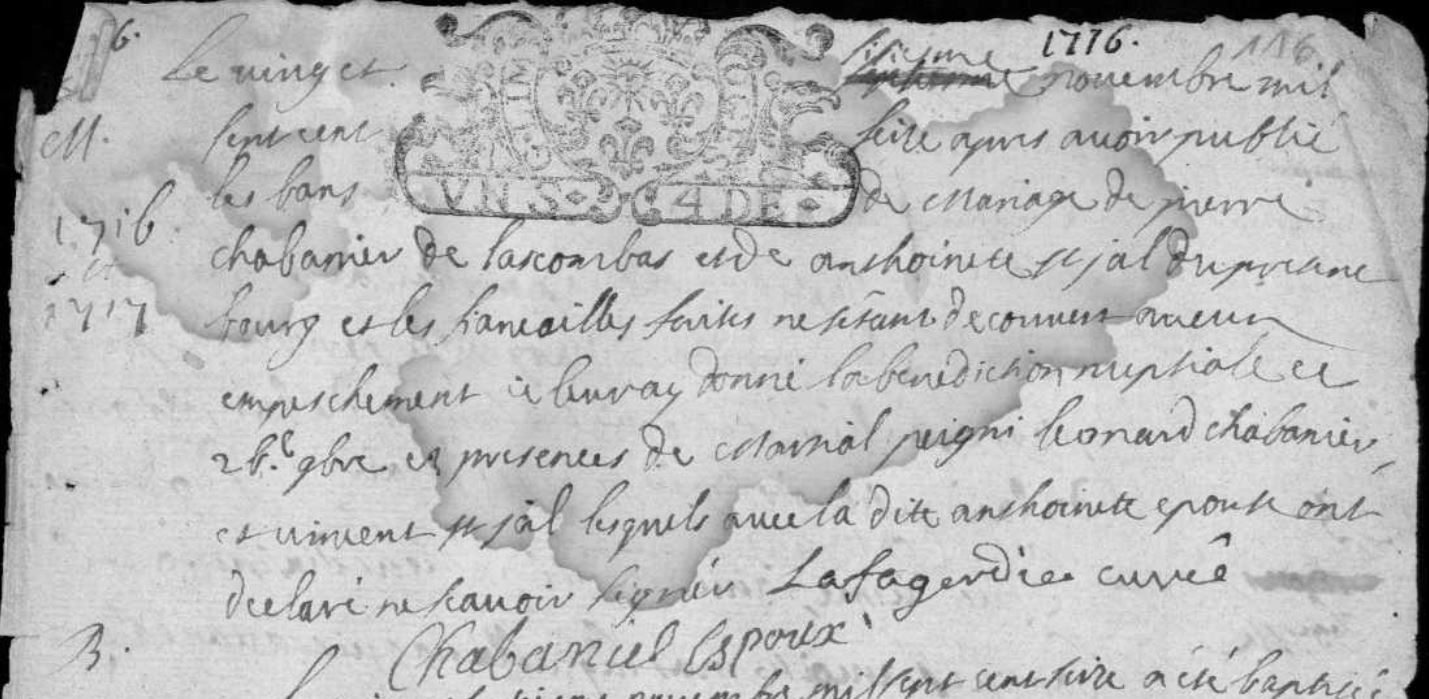 6. 1776. 116
Le vinget sisieme novembre mil
M. sept cent seise apres avoir publié
les bans VN.S 4 DE de Mariage de pierre
1716 chabanier de lascombas et de anthoinete st jal du presene
et
1717 bourg et les fiancailles faites ne sétant decouvert aucun
empeschement ie leur ay donné la benediction nuptiale ce
26.e 9bre ez presences de Martial peigni leonard chabanier,
et vincent st jal lesquels avec la dite anthoinete epouse ont
declaré ne scavoir signér Lafagerdie curée
B. Chabaniel Espoux
novembre mil sept cent seise a été baptisé